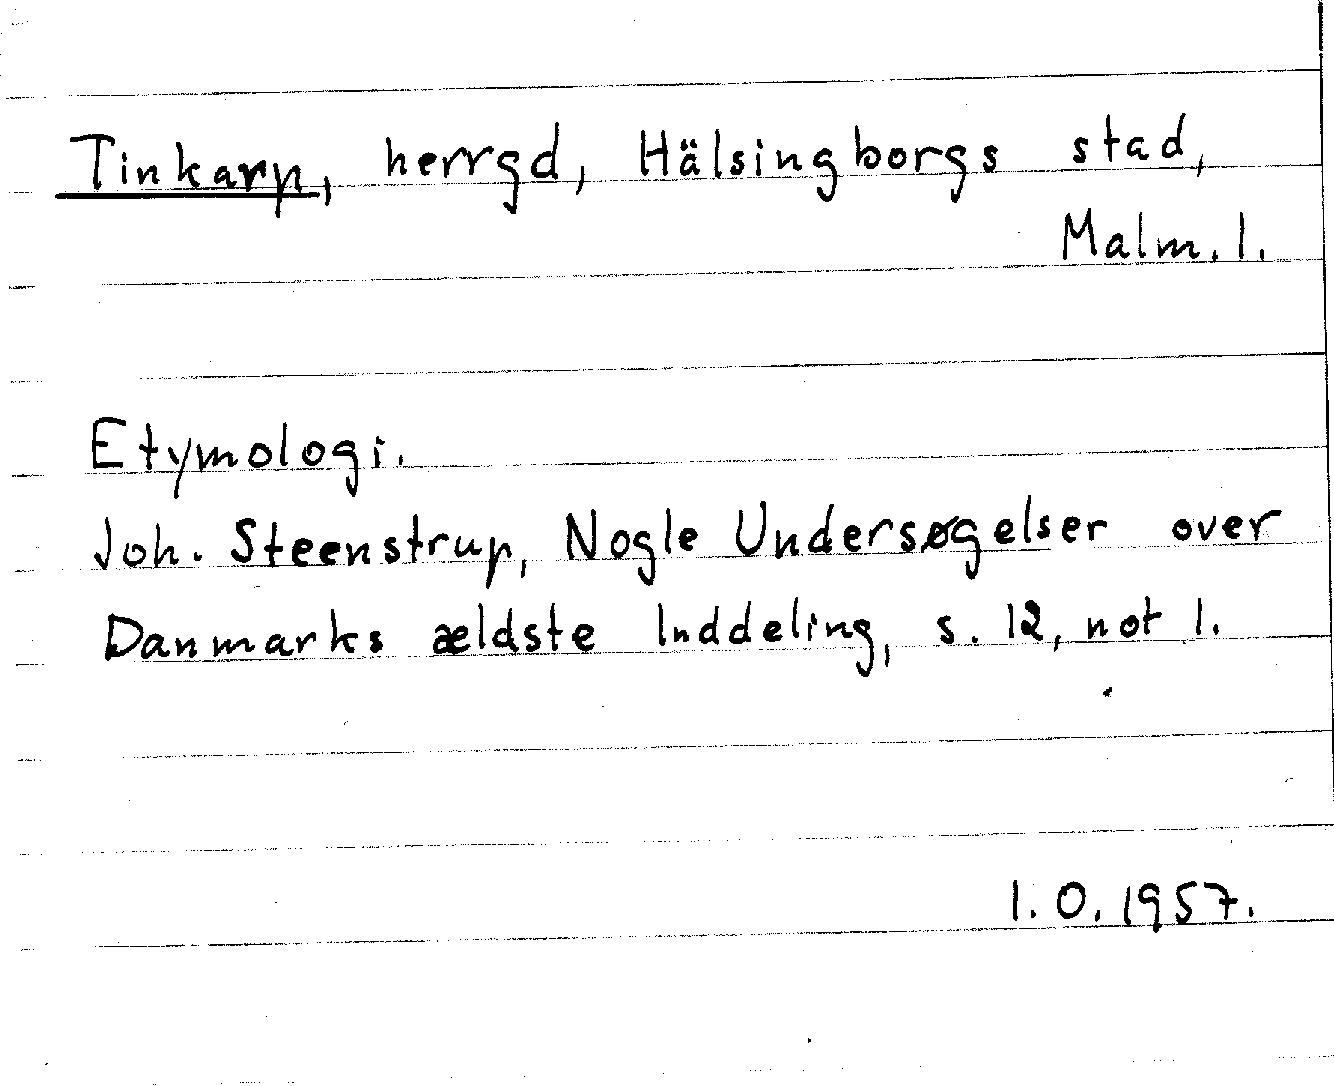 Tinkarp, herrgd, Hälsingborgs stad,
Malm. l.
Etymologi.
Joh. Steenstrup, Nogle Undersøgelser over
Danmarks ældste Inddeling, s. 12, not 1.
I.O. 1957.